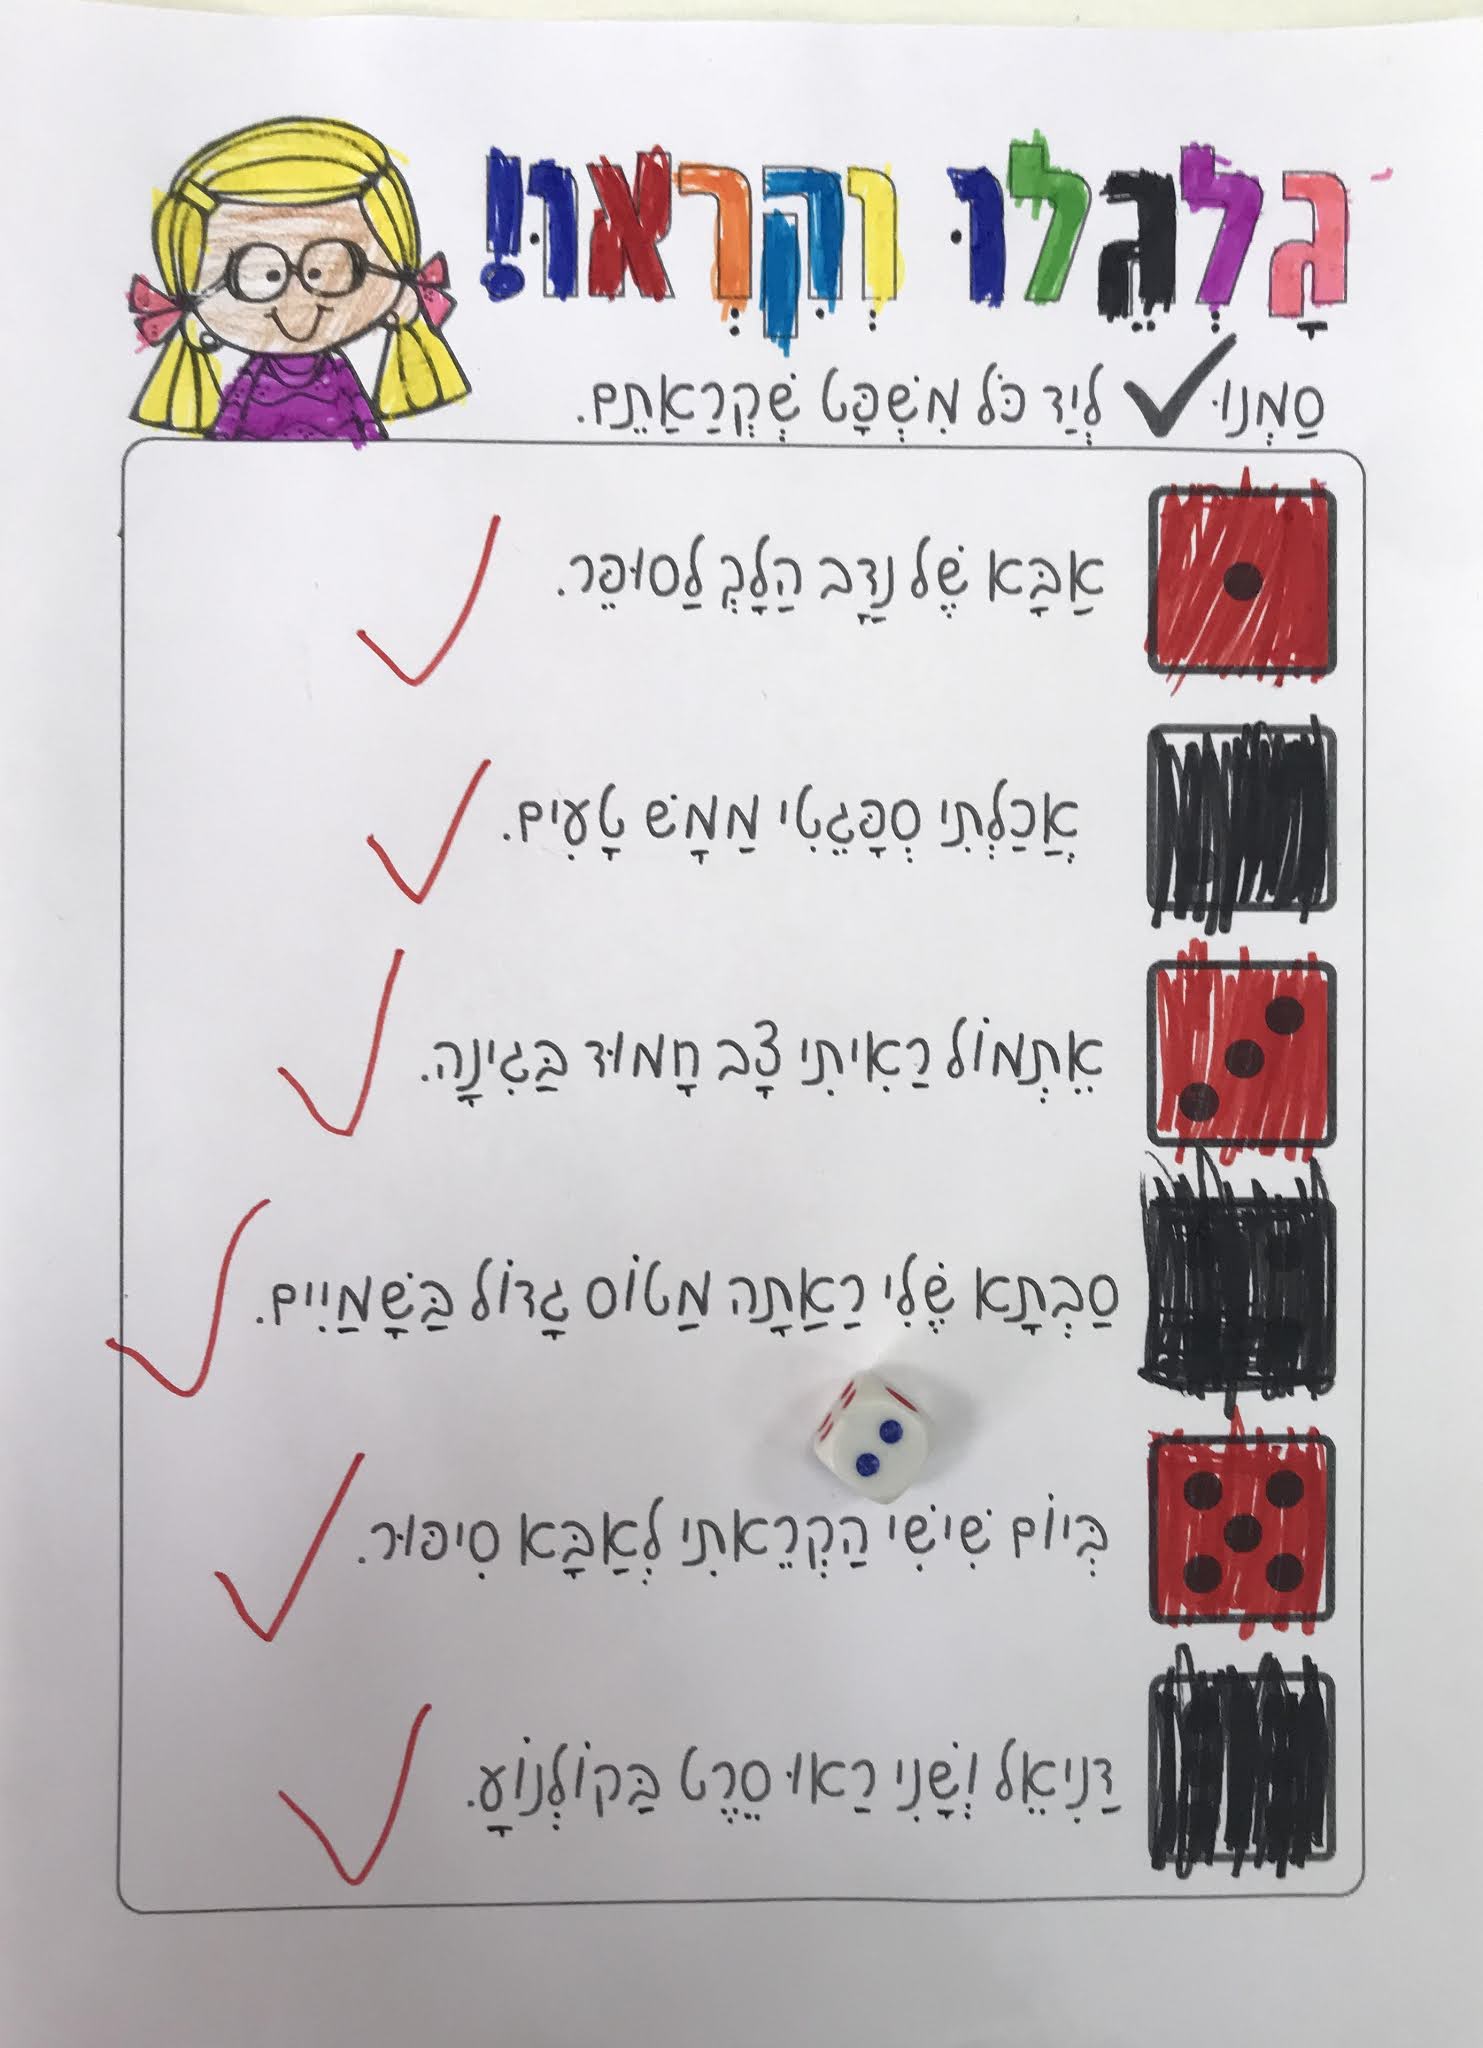 גַּלְגְּלוּ וְקִרְאוּ!
סַמְּנוּ ✓ לְיַד כֹּל מִשְׁפָּט שֶׁקְּרָאתֶם.
אַבָּא שֶׁל נָדָב הָלַךְ לַסוּפֵּר.
אֲכַלְתִּי סְפָּגֶטִי מַמָּשׁ טָעִים.
אֶתְמוֹל רָאִיתִי צָב חָמוּד בַּגִינָה.
סַבְתָא שֶׁלִי רָאֲתָה מָטוֹס גָדוֹל בַּשָּׁמַיִים.
בְּיוֹם שִׁישִׁי הִקְרֵאתִי לְאַבָּא סִיפּוּר.
דַנִיאֵל וְשָׁנִי רָאוּ סֶרֶט בַּקוֹלְנוֹעַ.